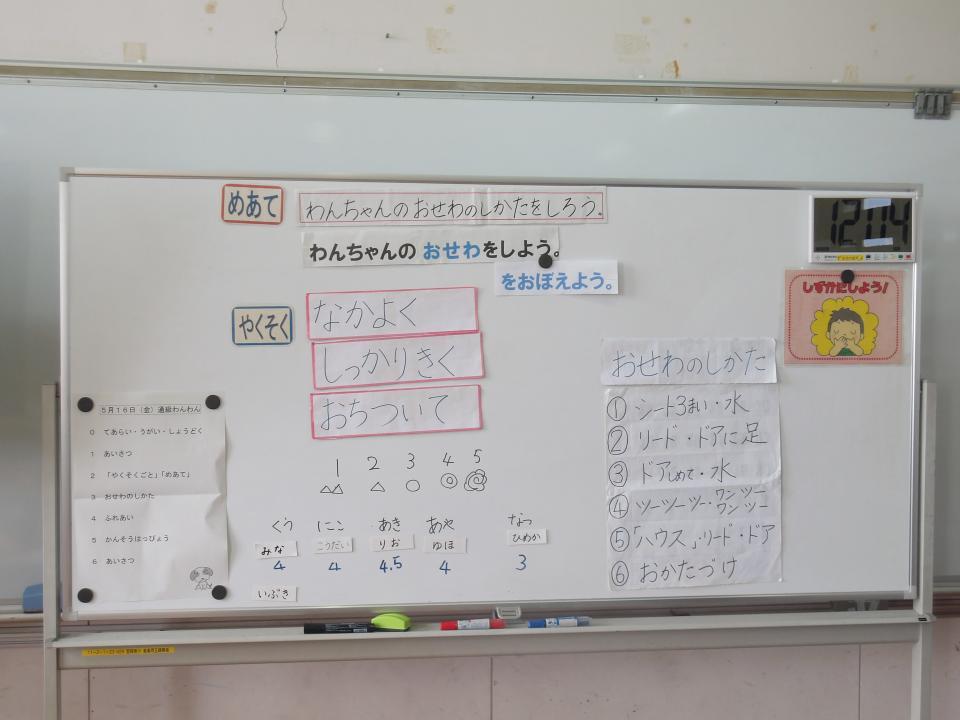 めあて
わんちゃんのおせわのしかたをしろう。
わんちゃんの おせわをしよう。
をおぼえよう。
12:04
しずかにしよう!
やくそく
なかよく
しっかりきく
おちついて
1 2 3 4 5
くう にこ あき あや なつ
みな こうだい りお ゆほ ひめか
4 4 4.5 4 3
いぶき
5月16日(金)通級わんわん
0 てあらい・うがい・しょうどく
1 あいさつ
2 「やくそくごと」「めあて」
3 おせわのしかた
4 ふれあい
5 かんそうはっぴょう
6 あいさつ
おせわのしかた
① シート3まい・水
② リード・ドアに足
③ ドアしめて・水
④ ツーツーツー・ワンツーワンツー
⑤「ハウス」・リード・ドア
⑥ おかたづけ